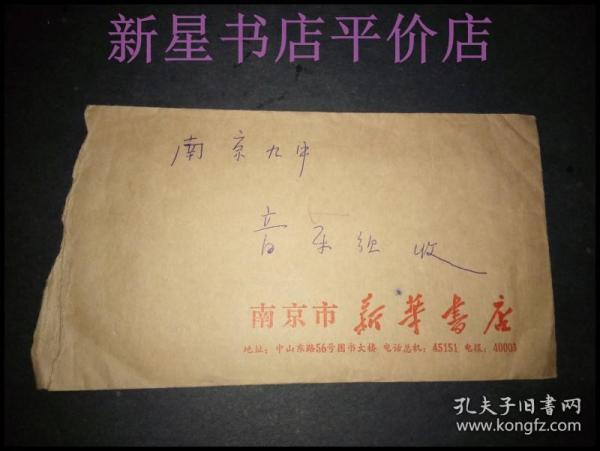 新星书店平价店
南京九中
音乐组 收
南京市 新华书店
地址：中山东路56号图书大楼 电话总机：45151 电报：40003
孔夫子旧书网
www.kongfz.com